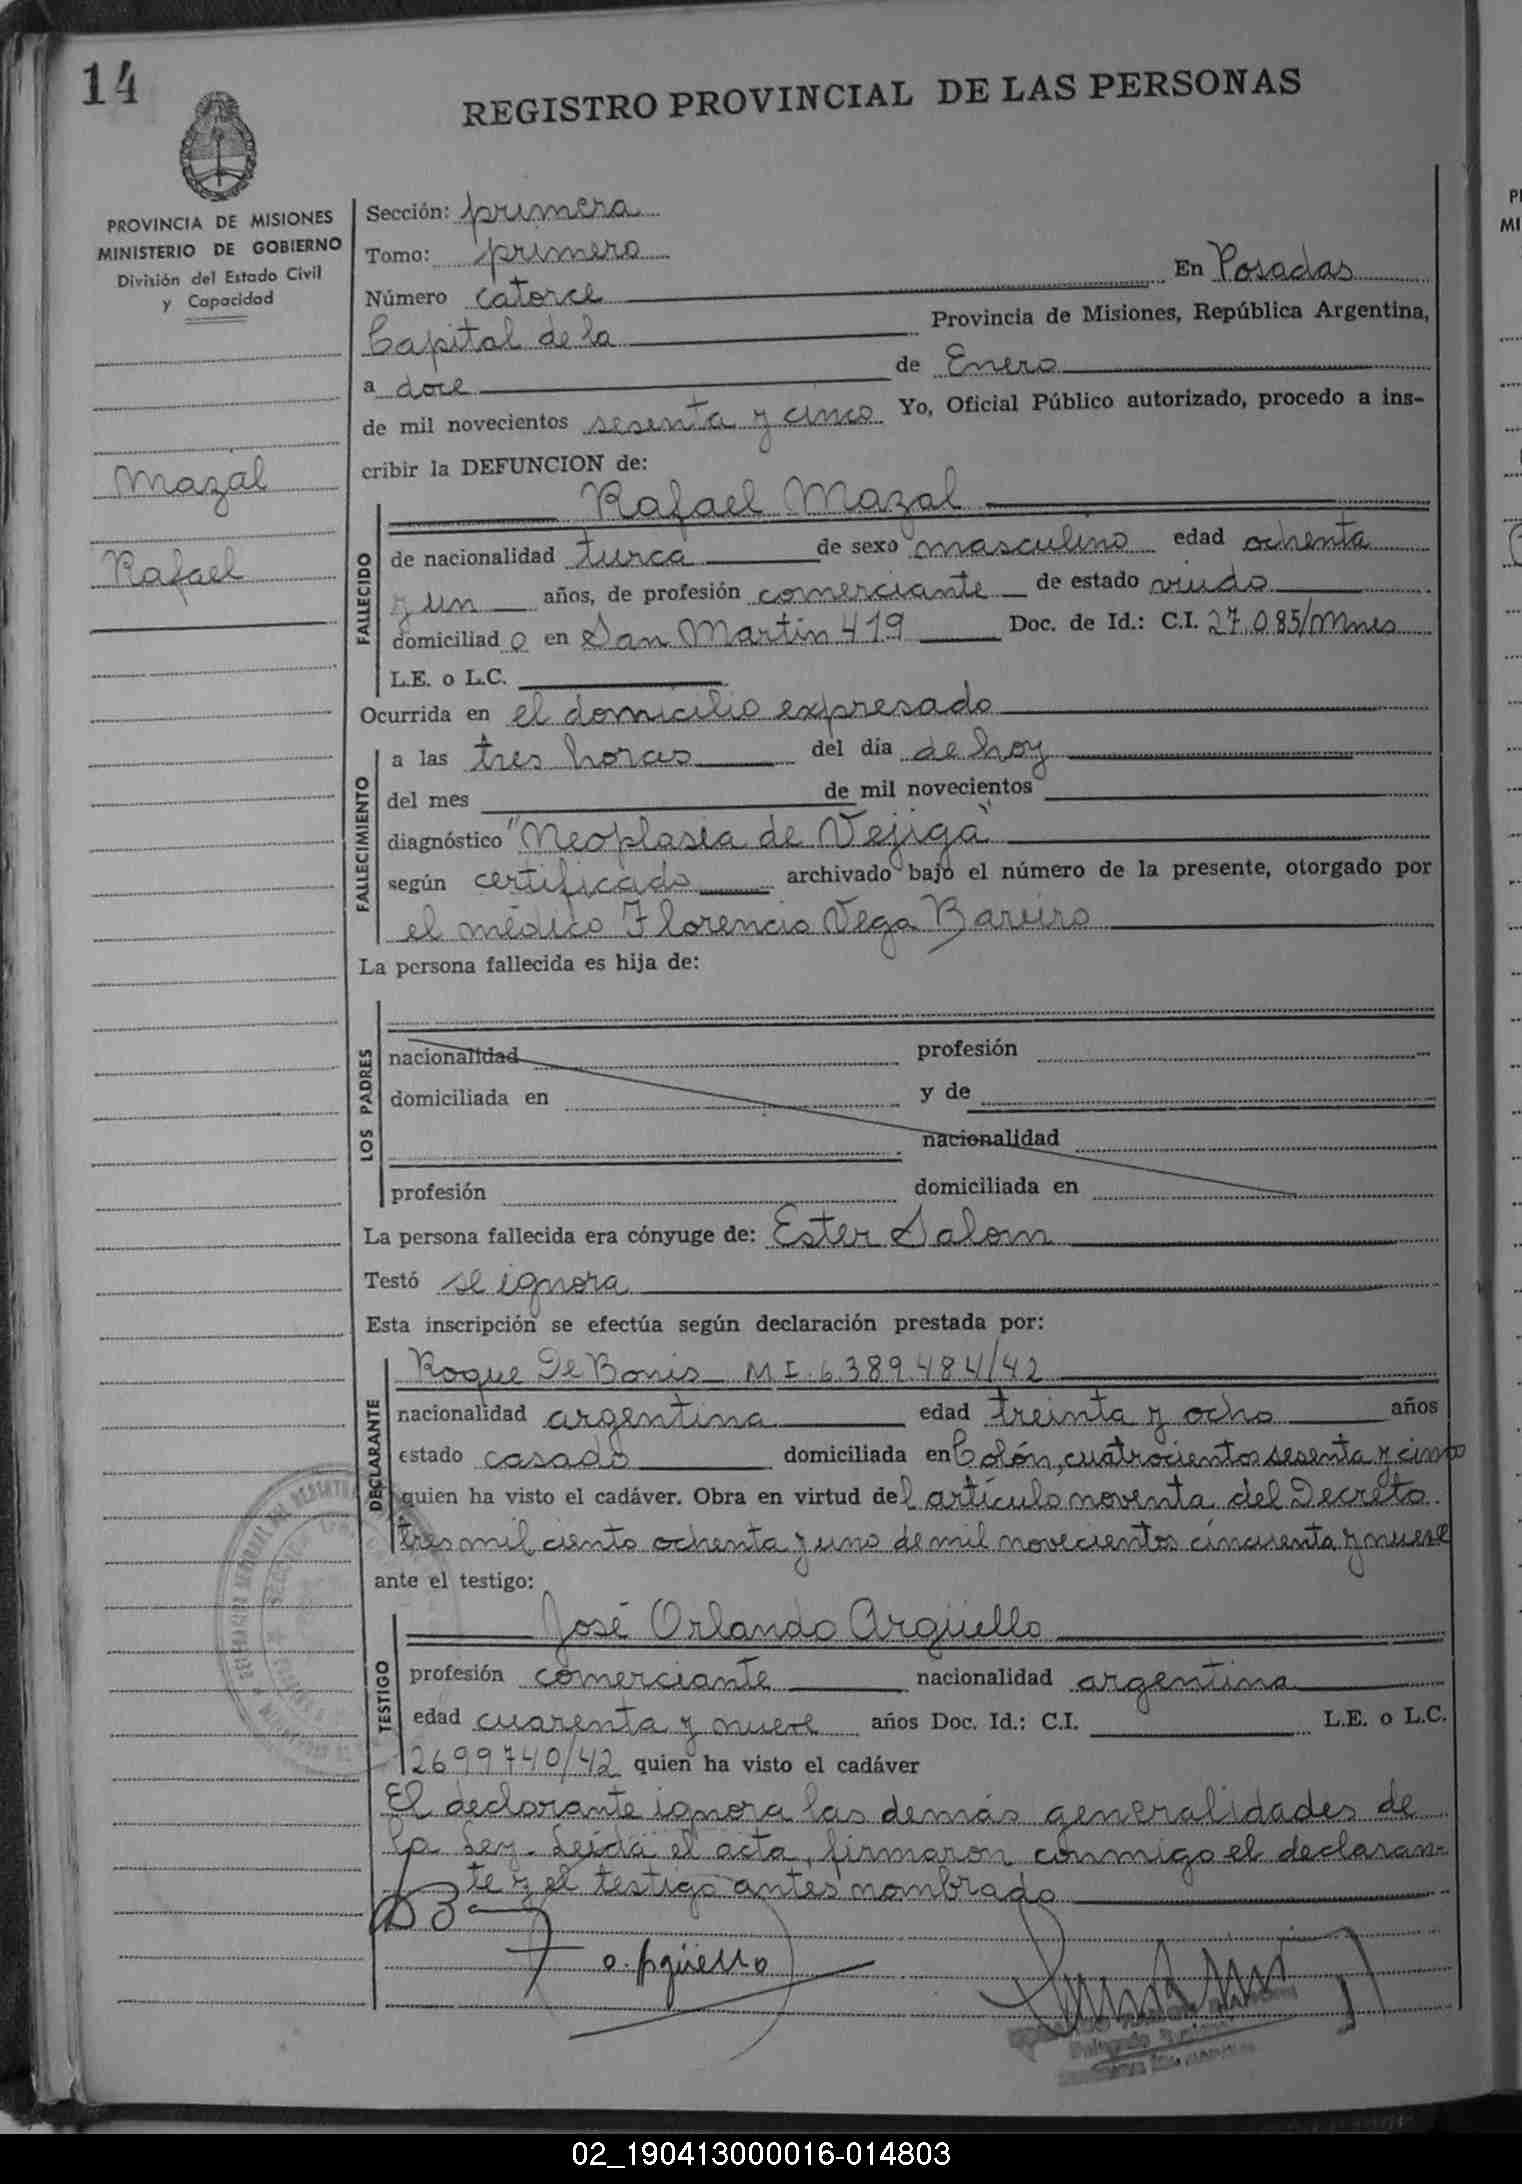 14
REGISTRO PROVINCIAL DE LAS PERSONAS
PROVINCIA DE MISIONES
MINISTERIO DE GOBIERNO
División del Estado Civil
y Capacidad
Mazal
Rafael
Sección: primera
Tomo: primero
Número catorce En Posadas
Capital de la Provincia de Misiones, República Argentina,
a doce de Enero
de mil novecientos sesenta y cinco Yo, Oficial Público autorizado, procedo a ins-
cribir la DEFUNCION de:
Rafael Mazal
FALLECIDO
de nacionalidad turca de sexo masculino edad ochenta
y un años, de profesión comerciante de estado viudo
domiciliad o en San Martín 419 Doc. de Id.: C.I. 27.085/Mnes
L.E. o L.C.
Ocurrida en el domicilio expresado
FALLECIMIENTO
a las tres horas del día de hoy
del mes de mil novecientos
diagnóstico "Neoplasia de Vejiga"
según certificado archivado bajo el número de la presente, otorgado por
el médico Florencio Vega Bareiro
La persona fallecida es hija de:
LOS PADRES
nacionalidad profesión
domiciliada en y de
nacionalidad
profesión domiciliada en
La persona fallecida era cónyuge de: Ester Salom
Testó se ignora
Esta inscripción se efectúa según declaración prestada por:
DECLARANTE
Roque De Bonis M I. 6.389.484/42
nacionalidad argentina edad treinta y ocho años
estado casado domiciliada en Colón, cuatrocientos sesenta y cinco
quien ha visto el cadáver. Obra en virtud del artículo noventa del Decreto
tres mil ciento ochenta y uno de mil novecientos cincuenta y nueve
ante el testigo:
TESTIGO
José Orlando Argüello
profesión comerciante nacionalidad argentina
edad cuarenta y nueve años Doc. Id.: C.I. L.E. o L.C.
2699740/42 quien ha visto el cadáver
El declarante ignora las demás generalidades de
la Ley. Leída el acta, firmaron conmigo el declaran-
te y el testigo antes nombrado
O. Argüello
02_190413000016-014803